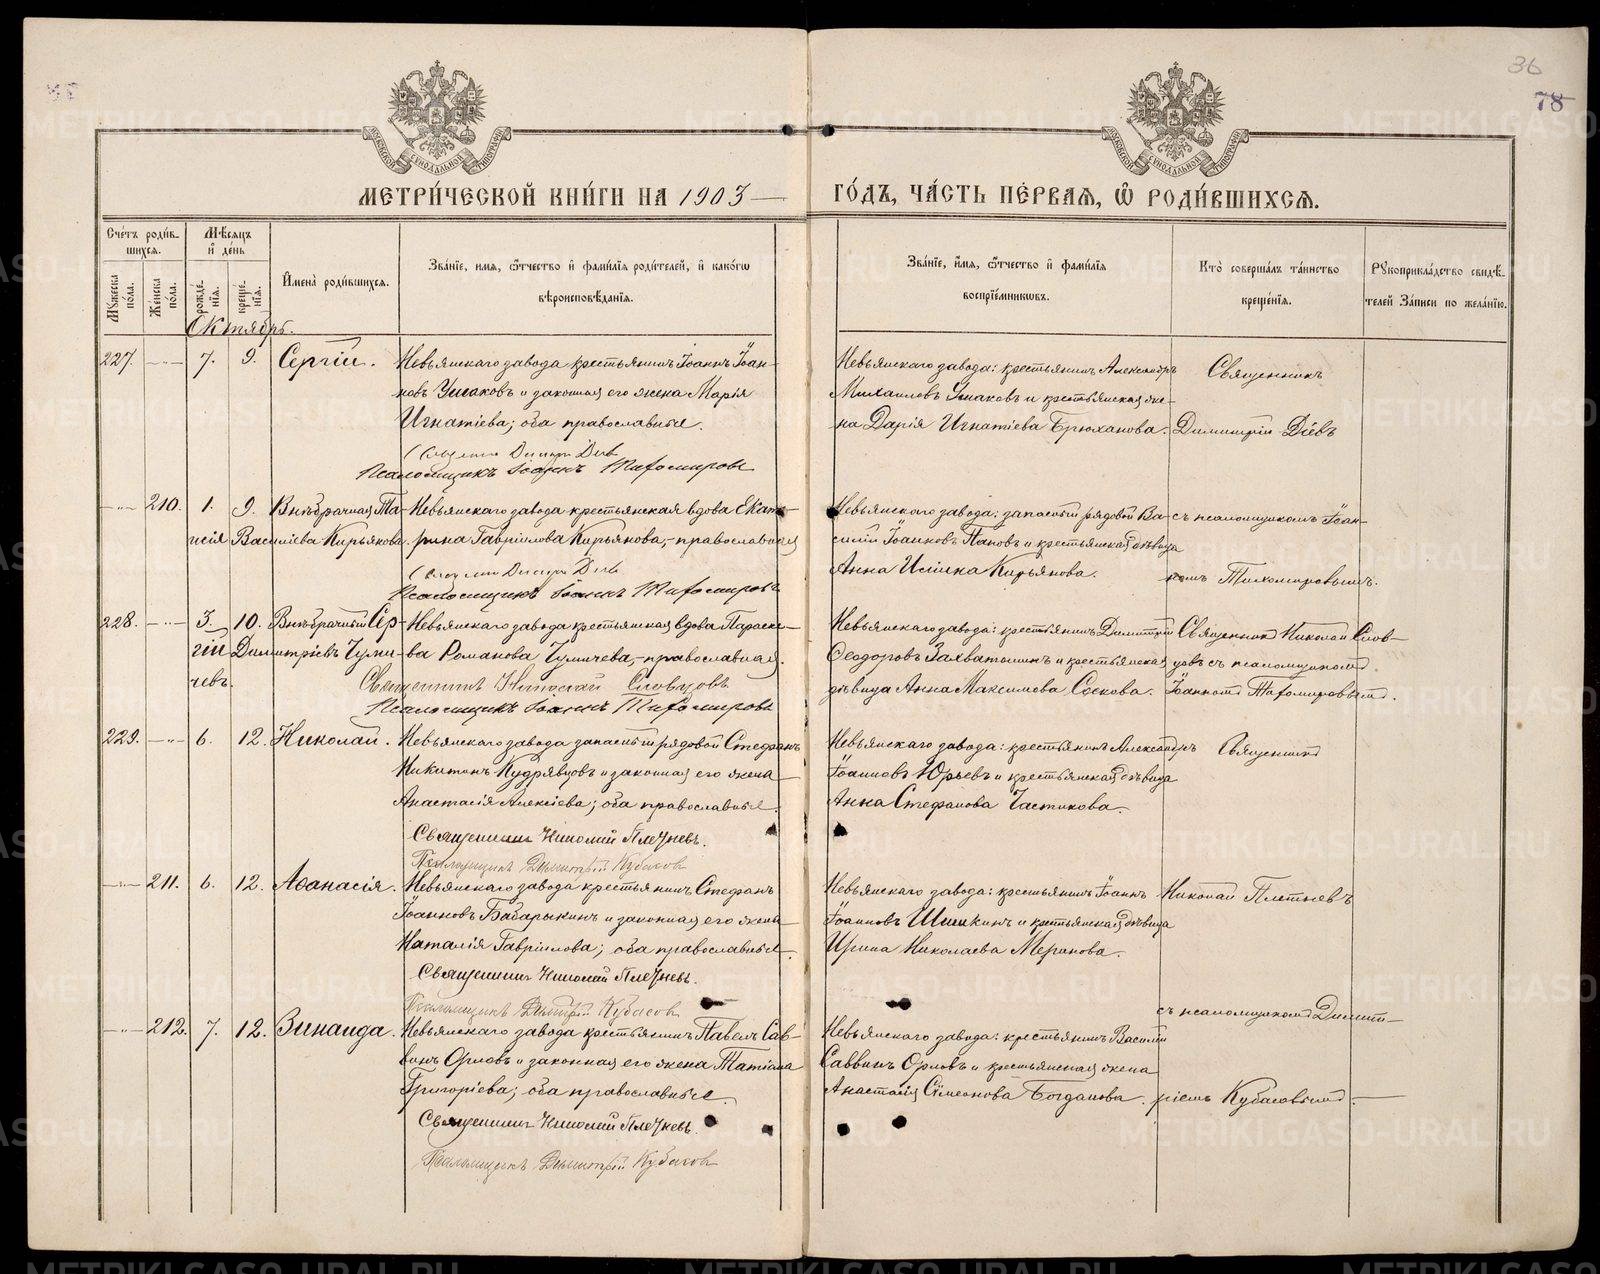 36
78
МОСКОВСКОЙ СѴНОДАЛЬНОЙ ТИПОГРАФІИ
МОСКОВСКОЙ СѴНОДАЛЬНОЙ ТИПОГРАФІИ
МЕТРИ́ЧЕСКОЙ КНИ́ГИ НА 1903
ГО́ДЪ, ЧА́СТЬ ПЕ́РВАЯ, Ѡ҆ РОДИ́ВШИХСЯ.
Сче́тъ роди́в-
шихся.
Му́жеска по́ла.
Же́нска по́ла.
Мѣ́сяцъ
и҆ де́нь
рожде́-
нїя.
креще́-
нїя.
И҆мена̀ роди́вшихся.
Зва́нїе, имя, ѻ҆́тчество и҆ фами́лїѧ роди́телей, и҆ како́гѡ
вѣроисповѣ́данїя.
Зва́нїе, и҆́мя, ѻ҆́тчество и҆ фами́лїя
воспрїе́мниковъ.
Кто̀ соверша́лъ та́инство
креще́нїя.
Рукоприкла́дство свидѣ́-
телей За́писи по жела́нїю.
Октябрь.
227. —"— 7. 9. Сергій. Невьянскаго завода крестьянинъ Іоаннъ Іоан-
новъ Ушаковъ и законная его жена Марія
Игнатіева; оба православные.
Священникъ Димитрій Діевъ
Псаломщикъ Іоаннъ Тихомировъ
Невьянскаго завода: крестьянинъ Александръ
Михаиловъ Ушаковъ и крестьянская же-
на Дарія Игнатіева Брюханова.
Священникъ
Димитрій Діевъ
—"— 210. 1. 9. Внѣбрачная Та-
исія Василіева Кирьякова.
Невьянскаго завода крестьянская вдова Екате-
рина Гавріилова Кирьянова, — православная
Священникъ Димитрій Діевъ
Псаломщикъ Іоаннъ Тихомировъ
Невьянскаго завода: запасный рядовой Ва-
силій Іоанновъ Пановъ и крестьянская дѣвица
Анна Иліина Кирьянова.
съ псаломщикомъ Іоан-
номъ Тихомировымъ.
228. —"— 3. 10. Внѣбрачный Сер-
гій Димитріевъ Чуми-
чевъ.
Невьянскаго завода крестьянская вдова Параске-
ва Романова Чумичева, — православная.
Священникъ Николай Словцовъ
Псаломщикъ Іоаннъ Тихомировъ
Невьянскаго завода: крестьянинъ Димитрій
Ѳеодоровъ Захваткинъ и крестьянская
дѣвица Анна Максимова Соскова.
Священникъ Николай Слов-
цовъ съ псаломщикомъ
Іоанномъ Тихомировымъ.
229. —"— 6. 12. Николай. Невьянскаго завода запасный рядовой Стефанъ
Никитинъ Кудрявцовъ и законная его жена
Анастасія Алексіева; оба православные.
Священникъ Николай Плетневъ.
Псаломщикъ Димитрій Кубасовъ
Невьянскаго завода: крестьянинъ Александръ
Іоанновъ Юрьевъ и крестьянская дѣвица
Анна Стефанова Частикова.
Священникъ
—"— 211. 6. 12. Аѳанасія. Невьянскаго завода крестьянинъ Стефанъ
Іоанновъ Бабарыкинъ и законная его жена
Наталія Гавріилова; оба православные.
Священникъ Николай Плетневъ.
Псаломщикъ Димитрій Кубасовъ
Невьянскаго завода: крестьянинъ Іоаннъ
Іоанновъ Шишкинъ и крестьянская дѣвица
Ирина Николаева Меринова.
Николай Плетневъ
—"— 212. 7. 12. Зинаида. Невьянскаго завода крестьянинъ Павелъ Сав-
винъ Орловъ и законная его жена Татіана
Григоріева; оба православные.
Священникъ Николай Плетневъ.
Псаломщикъ Димитрій Кубасовъ
Невьянскаго завода: крестьянинъ Василій
Саввинъ Орловъ и крестьянская жена
Анастасія Симеонова Богданова.
съ псаломщикомъ Димит-
ріемъ Кубасовымъ.
METRIKI.GASO-URAL.RU